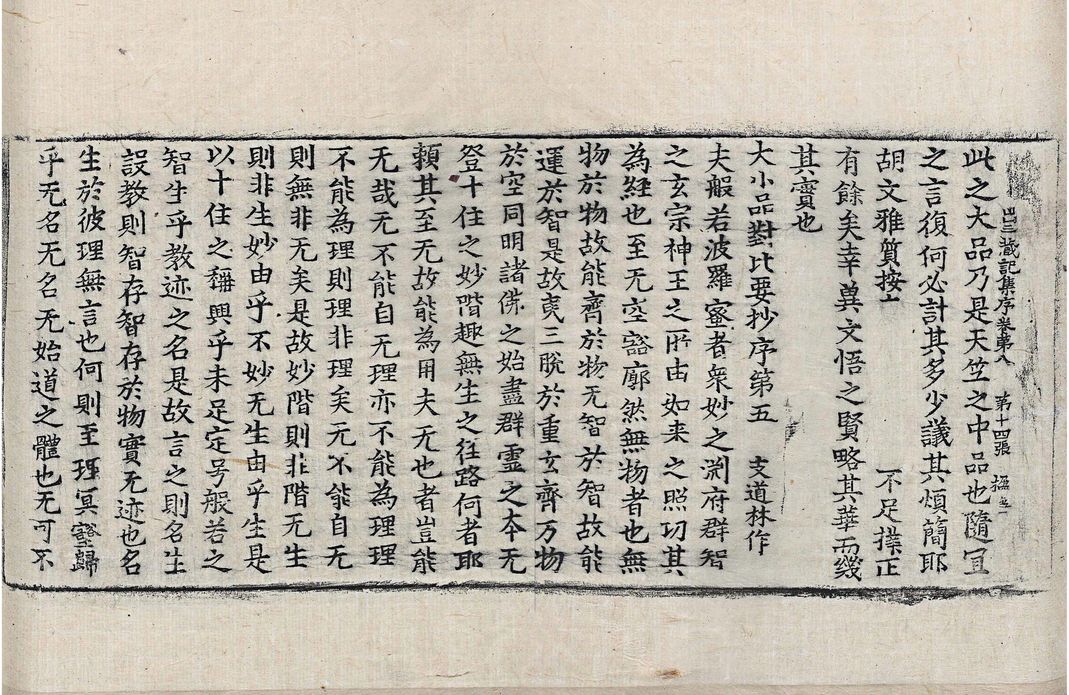 出三藏記集序卷第八 第十四張
此之大品乃是天竺之中品也隨宜
之言復何必計其多少議其煩簡耶
胡文雅質按 不足撲正
有餘矣幸兾文悟之賢略其華而幾
其實也
大小品對比要抄序第五 支道林作
夫般若波羅蜜者衆妙之淵府群智
之玄宗神王之所由如来之照功其
為経也至无空豁廓然無物者也無
物於物故能齊於物无智於智故能
運於智是故夷三脫於重玄齊万物
於空同明諸佛之始盡群靈之本无
登十住之妙階趣無生之徑路何者耶
賴其至无故能為用夫无也者豈能
无哉无不能自无理亦不能為理理
不能為理則理非理矣无不能自无
則無非无矣是故妙階則非階无生
則非生妙由乎不妙无生由乎生是
以十住之稱興乎未足定号般若之
智生乎教迹之名是故言之則名生
設教則智存智存於物實无迹也名
生於彼理無言也何則至理冥壑歸
乎无名无名无始道之體也无可不